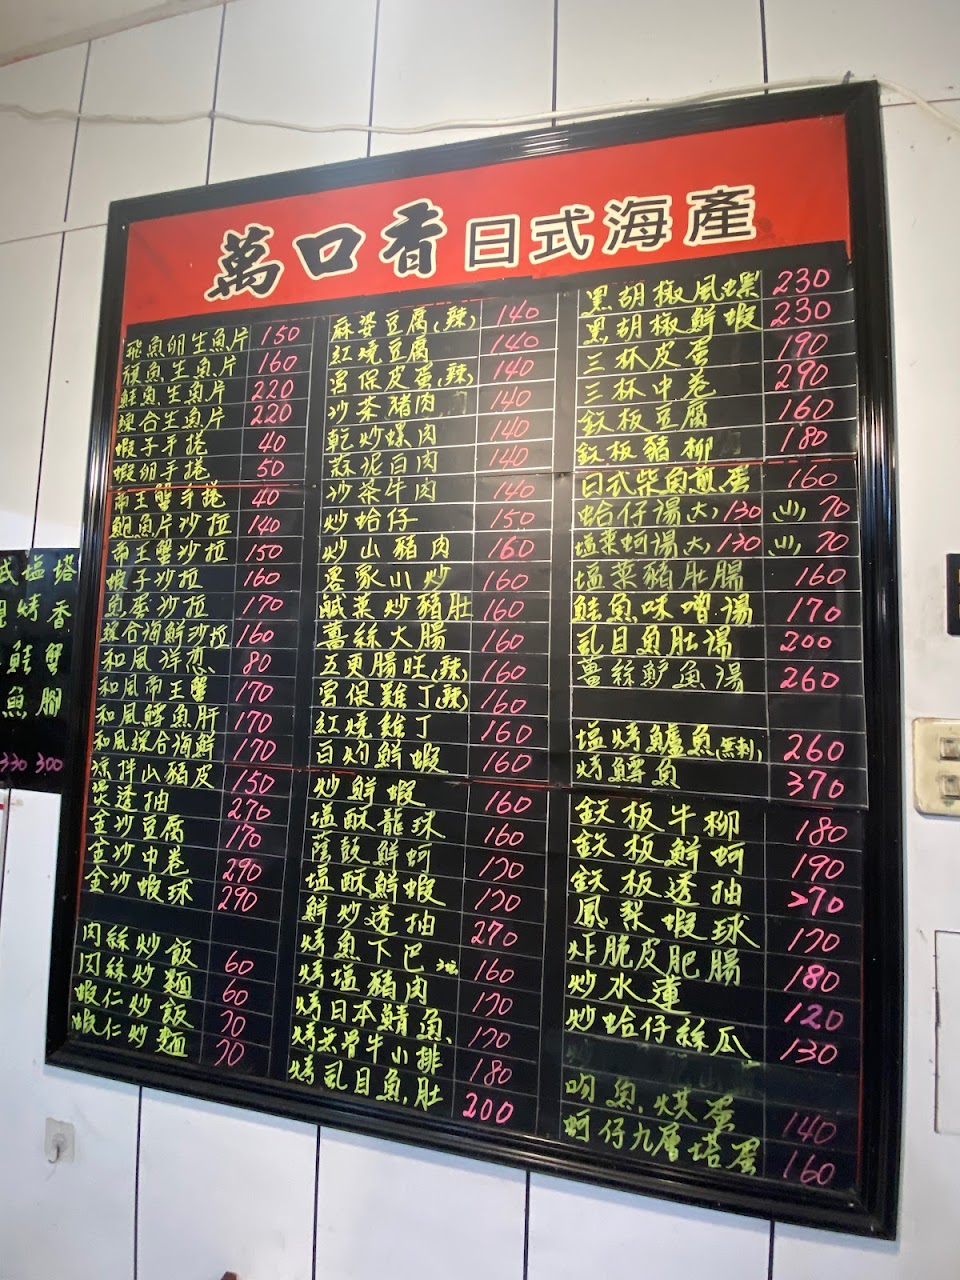 萬口香 日式海產
飛魚卵生魚片 150
旗魚生魚片 160
鮭魚生魚片 220
綜合生魚片 220
蝦子手捲 40
蝦卵手捲 50
帝王蟹手捲 40
鮑魚片沙拉 140
帝王蟹沙拉 150
蝦子沙拉 160
魚蛋沙拉 170
綜合海鮮沙拉 160
和風洋蔥 80
和風帝王蟹 170
和風鱈魚肝 170
和風綜合海鮮 170
涼拌山豬皮 150
燙透抽 270
金沙豆腐 170
金沙中卷 290
金沙蝦球 290
肉絲炒飯 60
肉絲炒麵 60
蝦仁炒飯 70
蝦仁炒麵 70
麻婆豆腐(辣) 140
紅燒豆腐 140
宮保皮蛋(辣) 140
沙茶豬肉 140
乾炒螺肉 140
蒜泥白肉 140
沙茶牛肉 140
炒蛤仔 150
炒山豬肉 160
客家小炒 160
鹹菜炒豬肚 160
薑絲大腸 160
五更腸旺(辣) 160
宮保雞丁(辣) 160
紅燒雞丁 160
白灼鮮蝦 160
炒鮮蝦 160
塩酥龍珠 160
蔭鼓鮮蚵 170
塩酥鮮蝦 170
鮮炒透抽 270
烤魚下巴 160
烤塩豬肉 170
烤日本鯖魚 170
烤無骨牛小排 180
烤虱目魚肚 200
黑胡椒風螺 230
黑胡椒鮮蝦 230
三杯皮蛋 190
三杯中卷 290
鉄板豆腐 160
鉄板豬柳 180
日式柴魚煎蛋 160
蛤仔湯(大)130 (小)70
塩菜蚵湯(大)130 (小)70
塩菜豬肚腸 160
鮭魚味噌湯 170
虱目魚肚湯 200
薑絲魚湯 260
塩烤鱸魚(無刺) 260
烤鱈魚 370
鉄板牛柳 180
鉄板鮮蚵 190
鉄板透抽 270
鳳梨蝦球 170
炸脆皮肥腸 180
炒水蓮 120
炒蛤仔絲瓜 130
吻魚烘蛋 140
蚵仔九層塔蛋 160
式塩塔
烤香
鮭蟹
魚腳
330 300